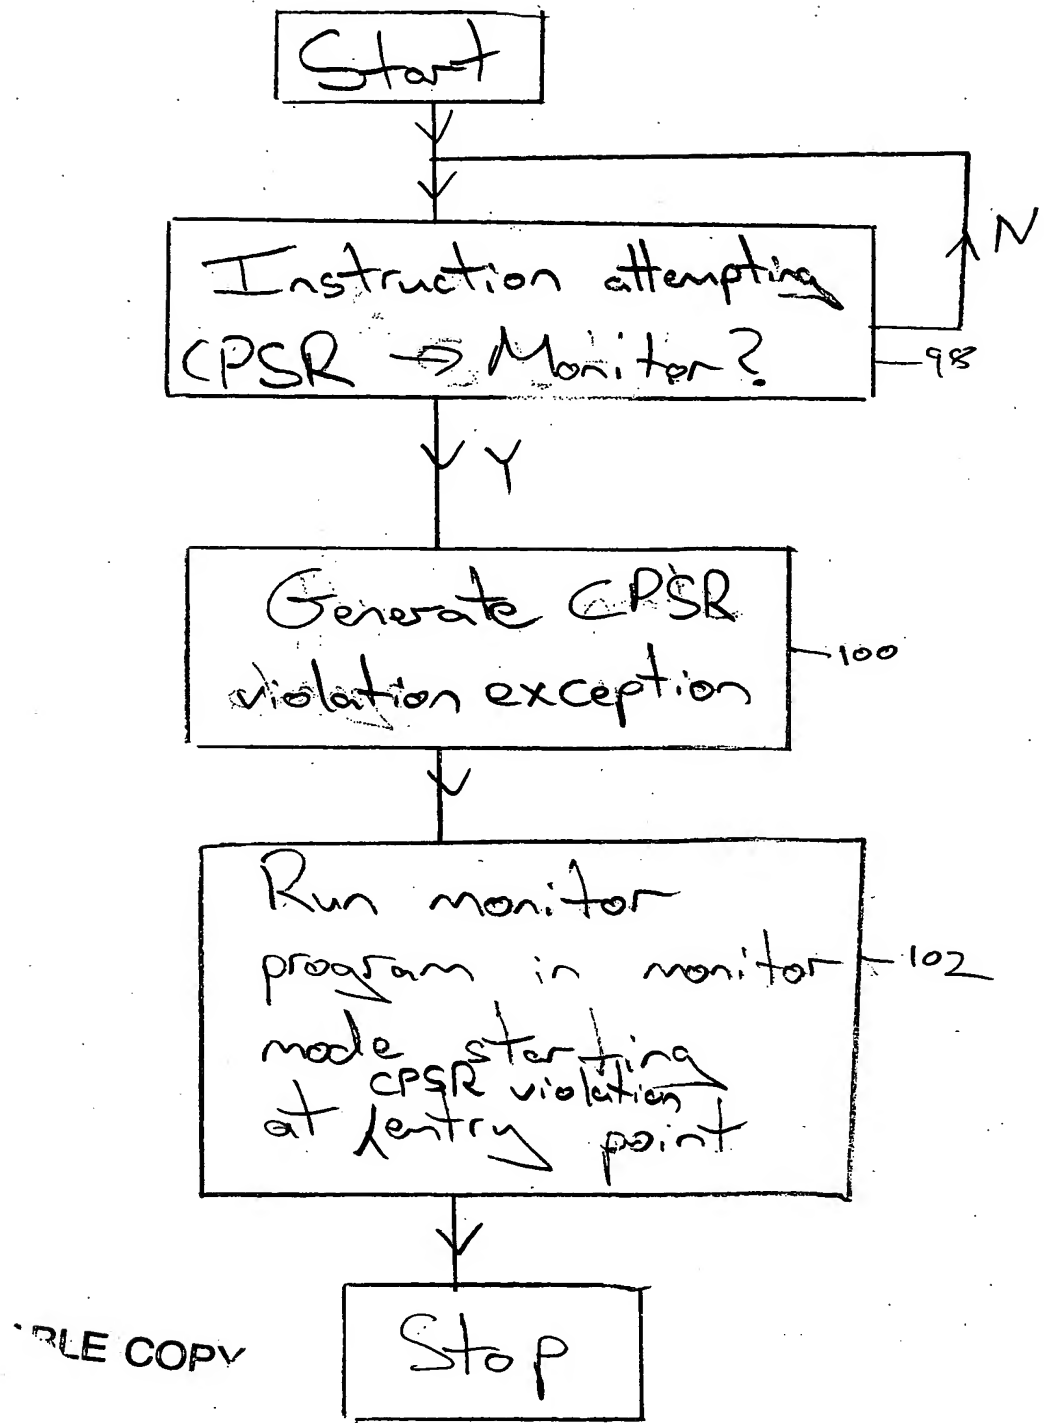 Start
N
Instruction attempting
CPSR → Monitor?
98
Y
Generate CPSR
violation exception
100
Run monitor
program in monitor
102
mode starting
CPSR violation
at entry point
Stop
COPY